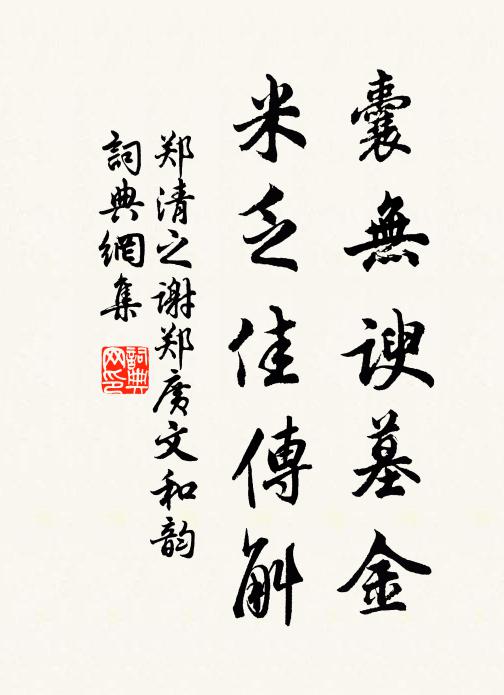 囊無諛墓金
米乏佳傳斛
郑清之谢郑廣文和韵
詞典網集
詞典網印